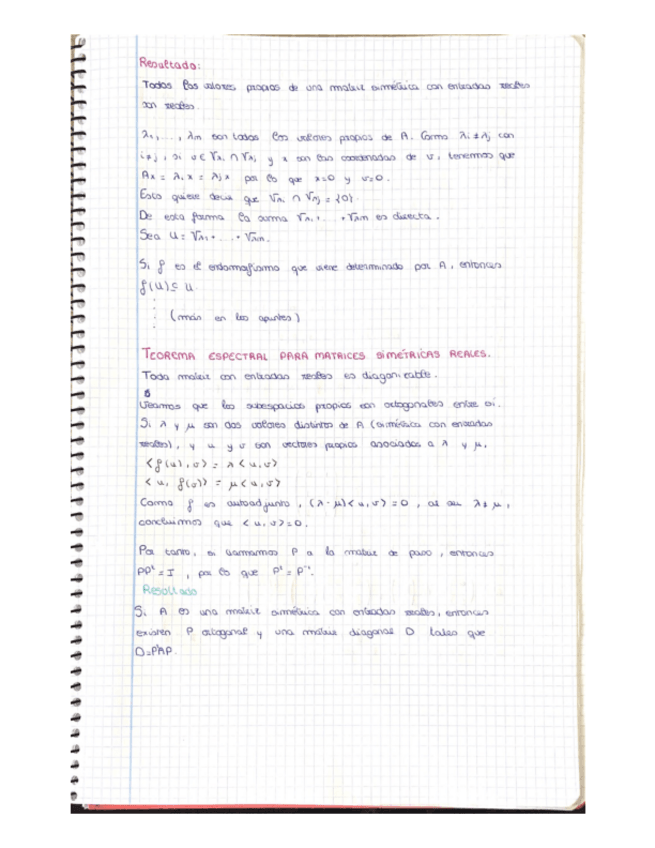 Resultado:
Todos los valores propios de una matriz simétrica con entradas reales
son reales.
λ₁, ..., λm son todos los valores propios de A. Como λi ≠ λj con
i≠j, si v ∈ Vλi ∩ Vλj y x son las coordenadas de v, tenemos que
Ax = λi x = λj x por lo que x=0 y v=0.
Esto quiere decir que Vλi ∩ Vλj = {0}
De esta forma la suma Vλ1 + ... + Vλm es directa.
Sea U = Vλ1 + ... + Vλm.
Si f es el endomorfismo que viene determinado por A, entonces
f(U) ⊆ U.
(más en los apuntes)
TEOREMA ESPECTRAL PARA MATRICES SIMÉTRICAS REALES.
Toda matriz con entradas reales es diagonizable.
Veamos que los subespacios propios son octogonales entre si.
Si λ y μ son dos valores distintos de A (simétrica con entradas
reales), y u y v son vectores propios asociados a λ y μ,
<f(u), v> = λ <u,v>
<u, f(v)> = μ <u,v>
Como f es autoadjunto, (λ-μ)<u,v> = 0, al ser λ≠μ,
concluimos que <u,v>=0.
Por tanto, si llamamos P a la matriz de paso, entonces
PPᵗ = I, por lo que Pᵗ = P⁻¹.
Resultado
Si A es una matriz simétrica con entradas reales, entonces
existen P octogonal y una matriz diagonal D tales que
D=PᵗAP.